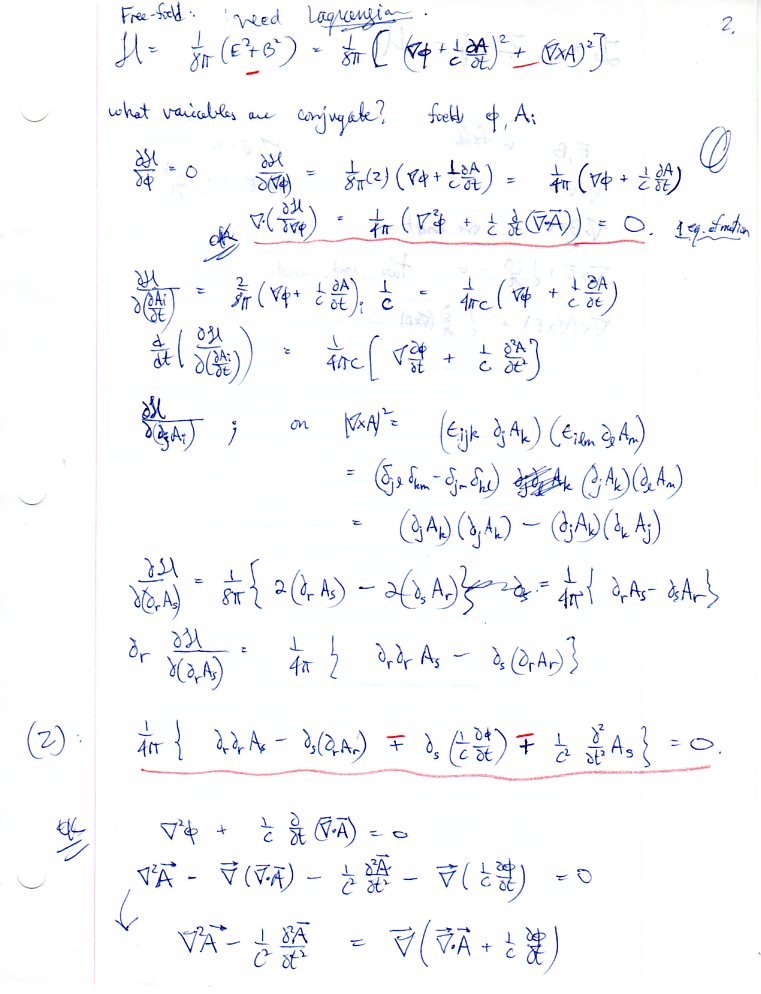 Free-field: need Lagrangian.
2.
ℋ = 1/8π (E² + B²) = 1/8π [ (∇φ + 1/c ∂A/∂t)² + (∇×A)² ]
what variables are conjugate? fields φ, Ai
∂ℋ/∂φ = 0 ∂ℋ/∂(∇φ) = 1/8π (2) (∇φ + 1/c ∂A/∂t) = 1/4π (∇φ + 1/c ∂A/∂t)
ok ∇·(∂ℋ/∂∇φ) = 1/4π (∇²φ + 1/c ∂/∂t (∇·A)) = 0. 1 eq. of motion
∂ℋ/∂(∂Ai/∂t) = 2/8π (∇φ + 1/c ∂A/∂t)i 1/c = 1/4πc (∇φ + 1/c ∂A/∂t)
d/dt (∂ℋ/∂(∂Ai/∂t)) = 1/4πc [ ∇∂φ/∂t + 1/c ∂²A/∂t² ]
∂ℋ/∂(∂jAi) ; on |∇×A|² = (εijk ∂jAk) (εilm ∂lAm)
= (δjl δkm - δjm δkl) (∂jAk)(∂lAm)
= (∂jAk)(∂jAk) - (∂jAk)(∂kAj)
∂ℋ/∂(∂rAs) = 1/8π { 2(∂rAs) - 2(∂sAr) } = 1/4π { ∂rAs - ∂sAr }
∂r ∂ℋ/∂(∂rAs) = 1/4π { ∂r∂rAs - ∂s(∂rAr) }
(2): 1/4π { ∂r∂rAs - ∂s(∂rAr) ∓ ∂s(1/c ∂φ/∂t) ∓ 1/c² ∂²/∂t² As } = 0.
ok ∇²φ + 1/c ∂/∂t (∇·A) = 0
∇²A - ∇(∇·A) - 1/c² ∂²A/∂t² - ∇(1/c ∂φ/∂t) = 0
∇²A - 1/c² ∂²A/∂t² = ∇(∇·A + 1/c ∂φ/∂t)